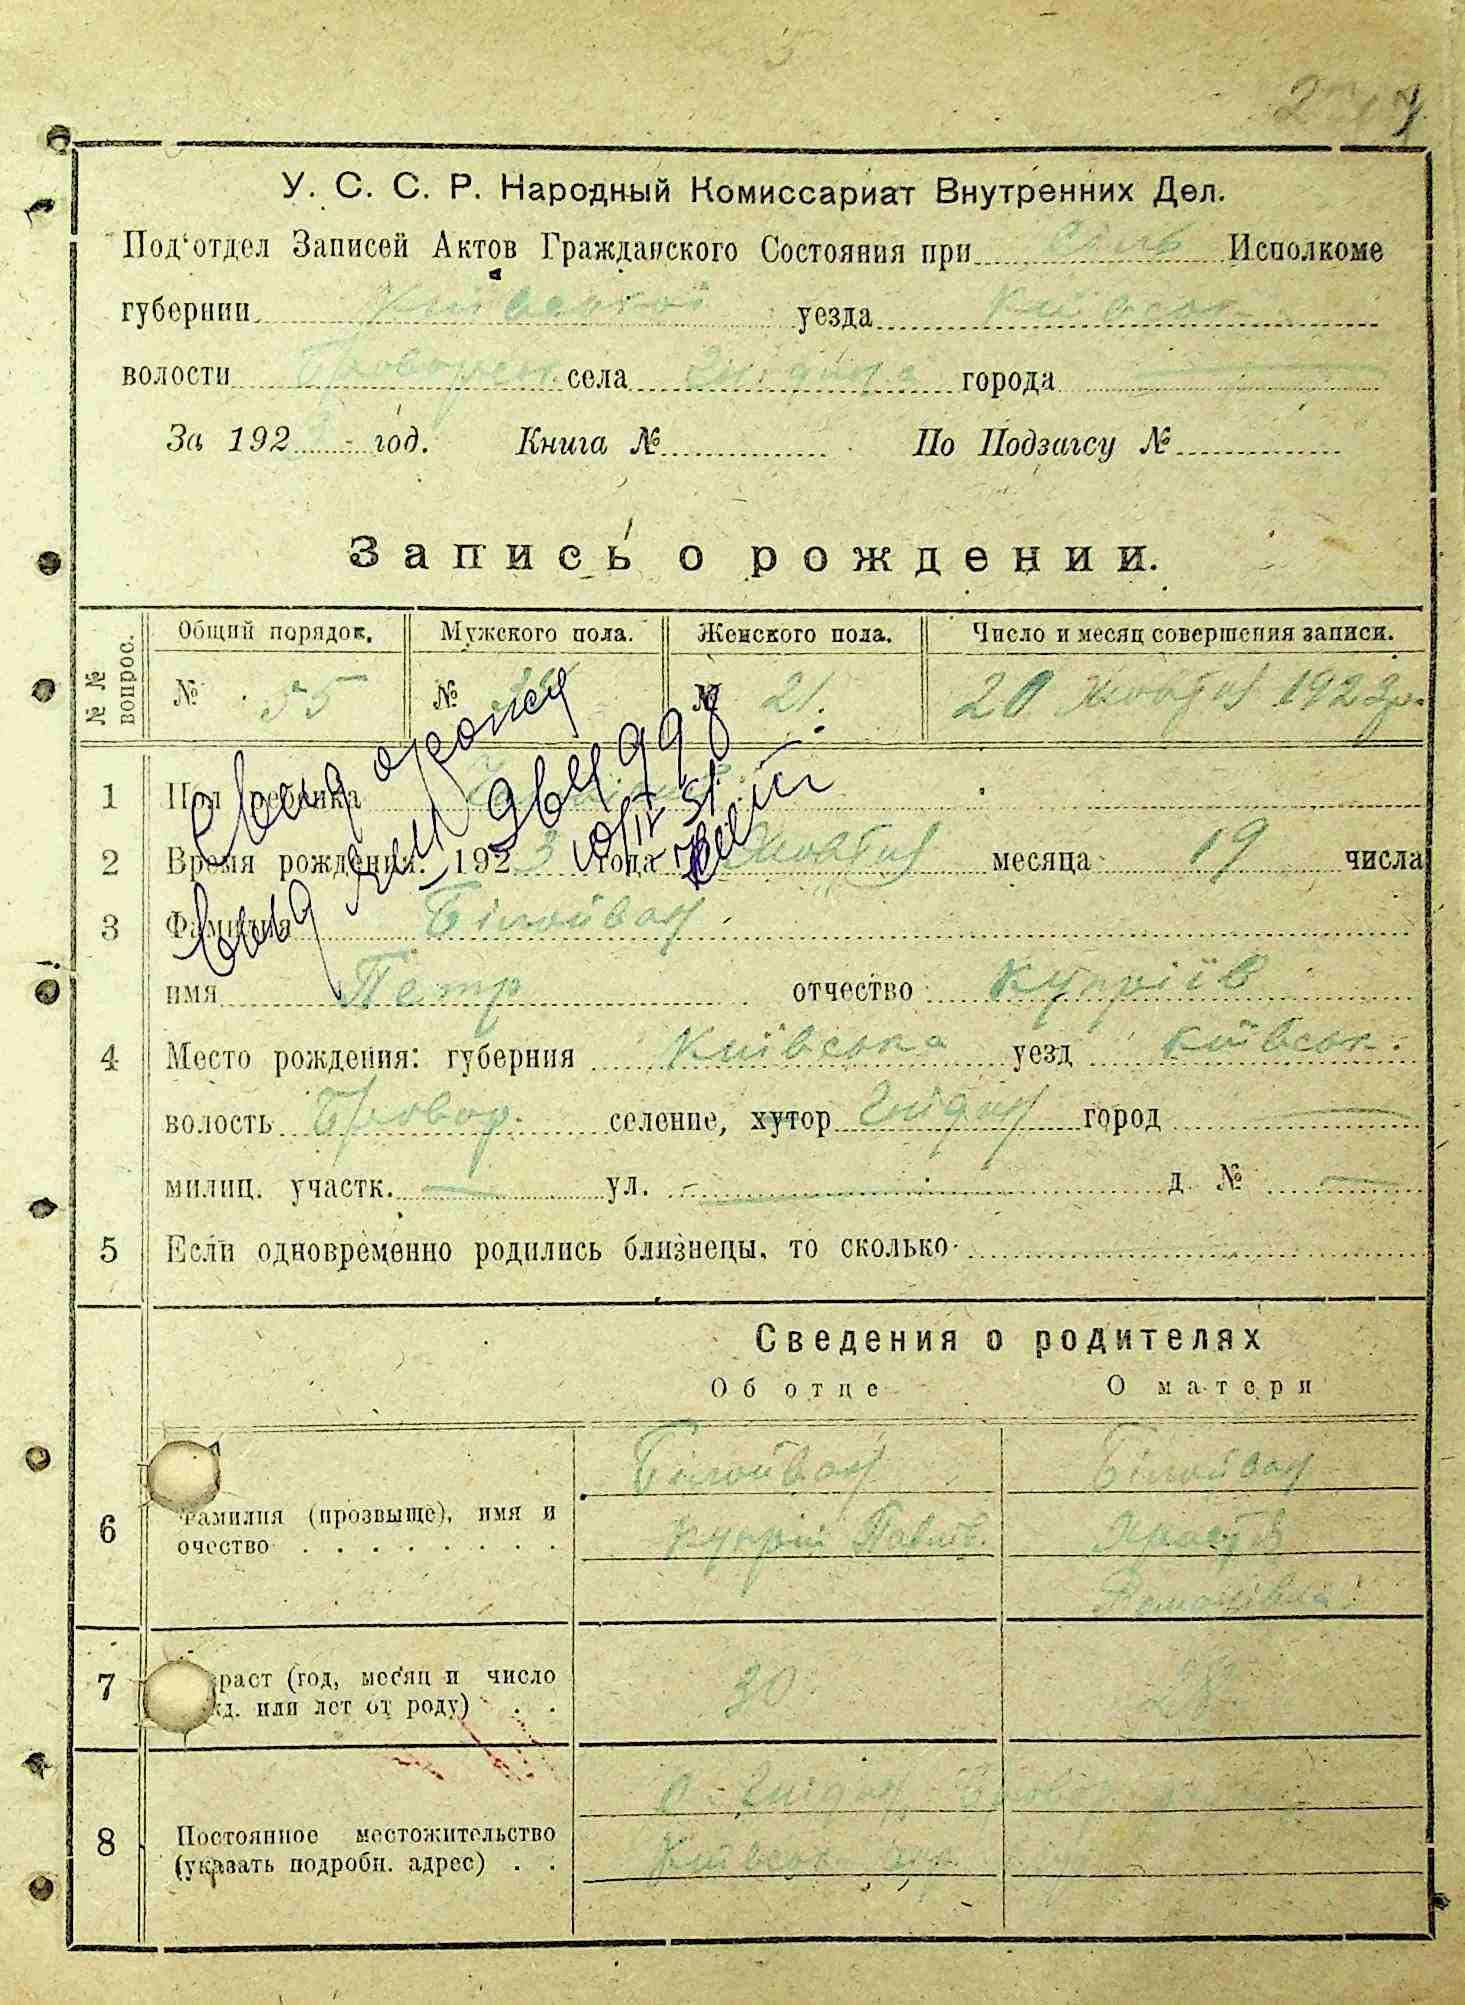 У. С. С. Р. Народный Комиссариат Внутренних Дел.
Под'отдел Записей Актов Гражданского Состояния при Сіль Исполкоме
губернии Київської уезда Київськ
волости Броварск. села города
За 192 год. Книга № По Подзагсу №
Запись о рождении.
№№ вопрос. Общий порядок. Мужского пола. Женского пола. Число и месяц совершения записи.
№ 55 № № 21. 20 Жовтня 1923р.
1 Пол ребенка
2 Время рождения. 1923 года Жовтня месяца 19 числа
3 Фамилия Білойван
имя Петр отчество Купріїв
4 Место рождения: губерния Київська уезд Київськ.
волость Бровар. селение, хутор город
милиц. участк. — ул. — д. № —
5 Если одновременно родились близнецы, то сколько
Сведения о родителях
Об отце О матери
Білойван Білойван
6 Фамилия (прозвыще), имя и Купрій Павлов.
очество
7 раст (год, месяц и число 30 28
жд. или лет от роду)
8 Постоянное местожительство
(указать подробн. адрес) Київськ окр.
10/IV 51